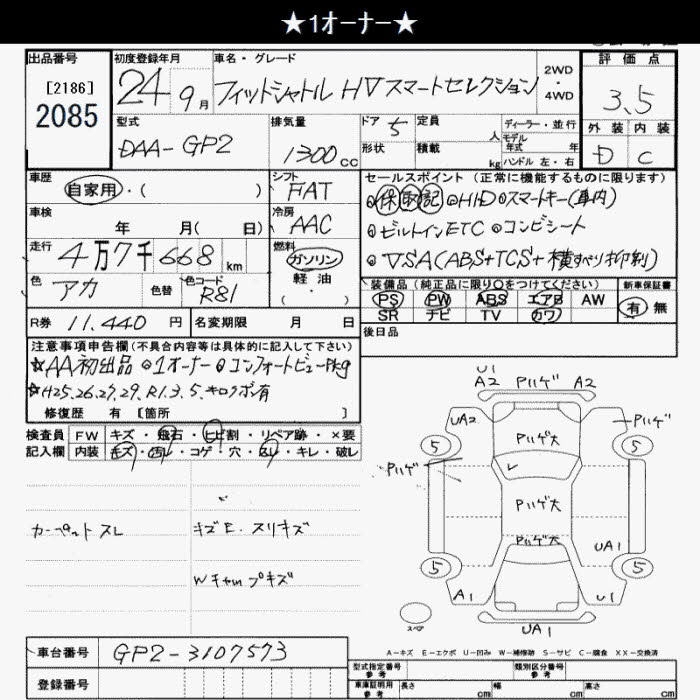 ★1オーナー★
出品番号
[2186]
2085
初度登録年月
24 9月
車名・グレード
フィットシャトル HV スマートセレクション
2WD
・
4WD
評価点
3.5
外装 内装
D C
型式
DAA-GP2
排気量
1300cc
ドア 5
形状
定員 人
積載 kg
ディーラー・並行
モデル
年式 年
ハンドル 左・右
車歴
自家用・( )
シフト
FAT
セールスポイント(正常に機能するものに限ります)
保 取 記 HID スマートキー(車内)
ビルトインETC コンビシート
VSA(ABS+TCS+横すべり抑制)
車検
年 月( 日)
冷房
AAC
走行
4万7千668km
燃料
ガソリン
軽油
・( )
色
アカ
色替
色コード
R81
装備品(純正品に限り○をつけてください)
PS PW ABS エアB AW
SR ナビ TV カワ
新車保証書
有 無
R券 11,440 円
名変期限 月 日
後日品
注意事項申告欄(不具合内容等は具体的に記入して下さい)
☆AA初出品 1オーナー コンフォートビューPkg
H25.26.27.29.R1.3.5.キロクボ有
修復歴 有 [箇所 ]
検査員
記入欄
FW キズ・飛石・ヒビ割・リペア跡・×要
内装 キズ・凹レ・コゲ・穴・スレ・キレ・破レ
カーペットスレ
キズE.スリキズ
Wキャップキズ
U1
A2 Pハゲ A2
UA2
Pハゲ
5 5
Pハゲ大
Pハゲ
Pハゲ大
Pハゲ大
UA1
5 5
A1
U1
スペア
UA1
A-キズ E-エクボ U-凹み W-補修跡 S-サビ C-腐食 XX-交換済
車台番号 GP2-3107573
登録番号
型式指定番号
参考
類別区分番号
参考
車庫証明用
参考
長さ cm 幅 cm 高さ cm